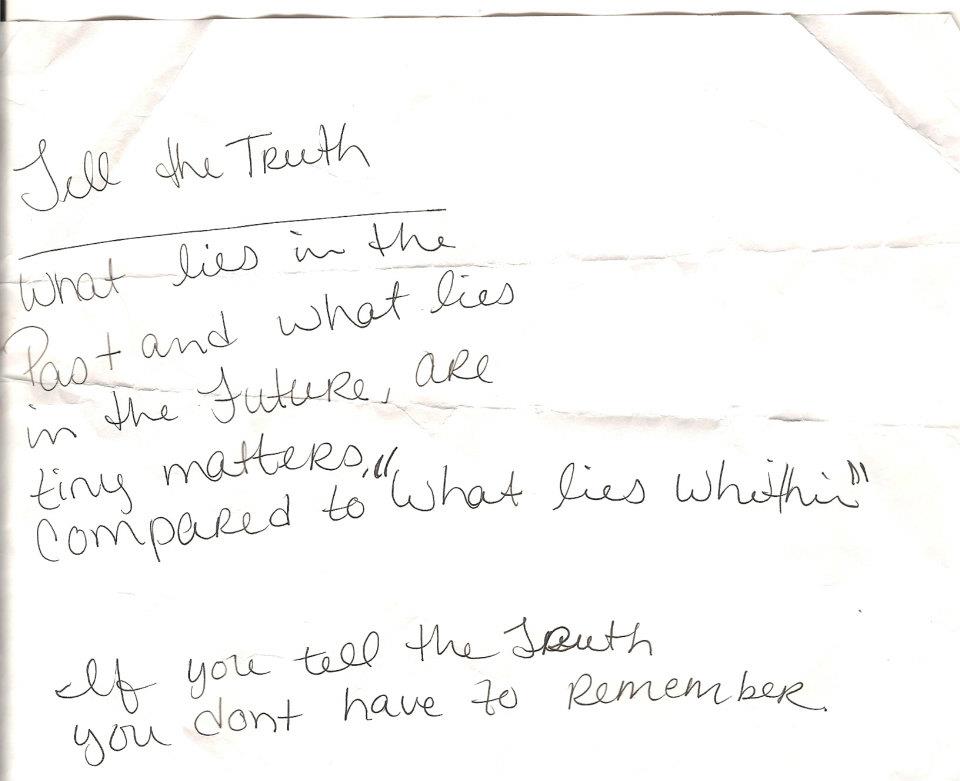 Tell the Truth
What lies in the
Past and what lies
in the Future, are
tiny matters,
Compared to "What lies Whithin"
If you tell the Truth
you dont have to Remember.